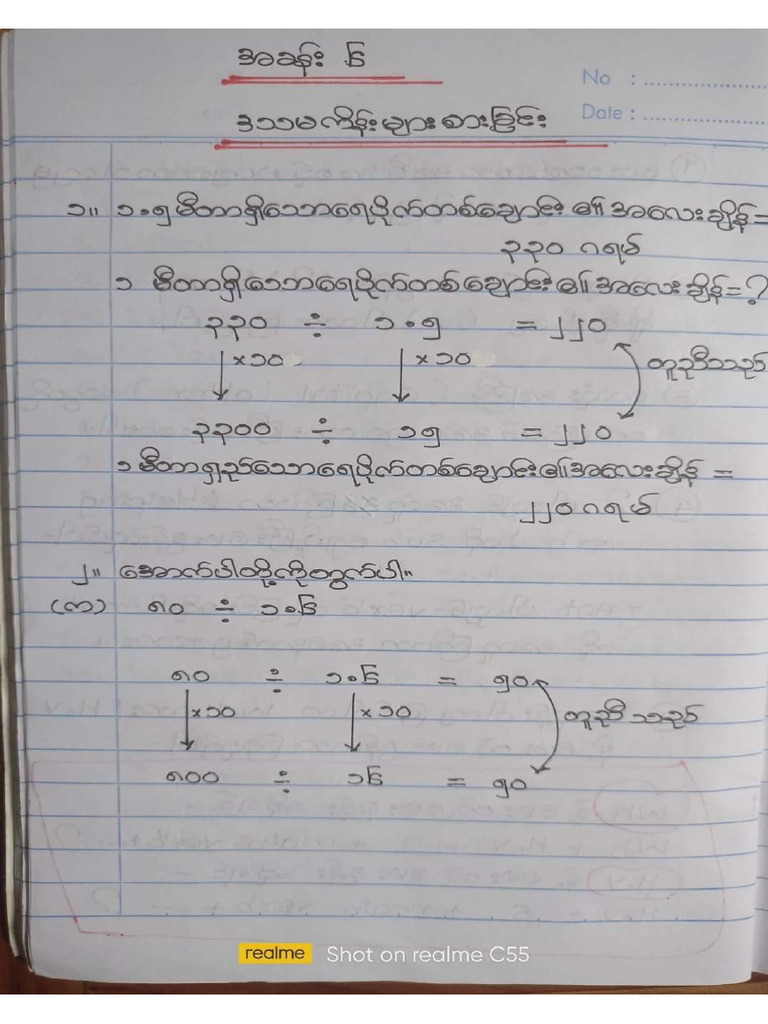 အခန်း ၆
No :
Date :
ဒသမကိန်းများစားခြင်း
၁။ ၁.၅ မီတာရှိသောရေပိုက်တစ်ချောင်း ၏ အလေးချိန် =
၃၃၀ ဂရမ်
၁ မီတာရှိသောရေပိုက်တစ်ချောင်း၏အလေးချိန် = ?
၃၃၀ ÷ ၁.၅ = ၂၂၀
×၁၀ ×၁၀ တူညီသည်
၃၃၀၀ ÷ ၁၅ = ၂၂၀
၁ မီတာရှည်သောရေပိုက်တစ်ချောင်း၏အလေးချိန် =
၂၂၀ ဂရမ်
၂။ အောက်ပါတို့ကိုတွက်ပါ။
(က) ၈၀ ÷ ၁.၆
၈၀ ÷ ၁.၆ = ၅၀
×၁၀ ×၁၀ တူညီသည်
၈၀၀ ÷ ၁၆ = ၅၀
realme Shot on realme C55